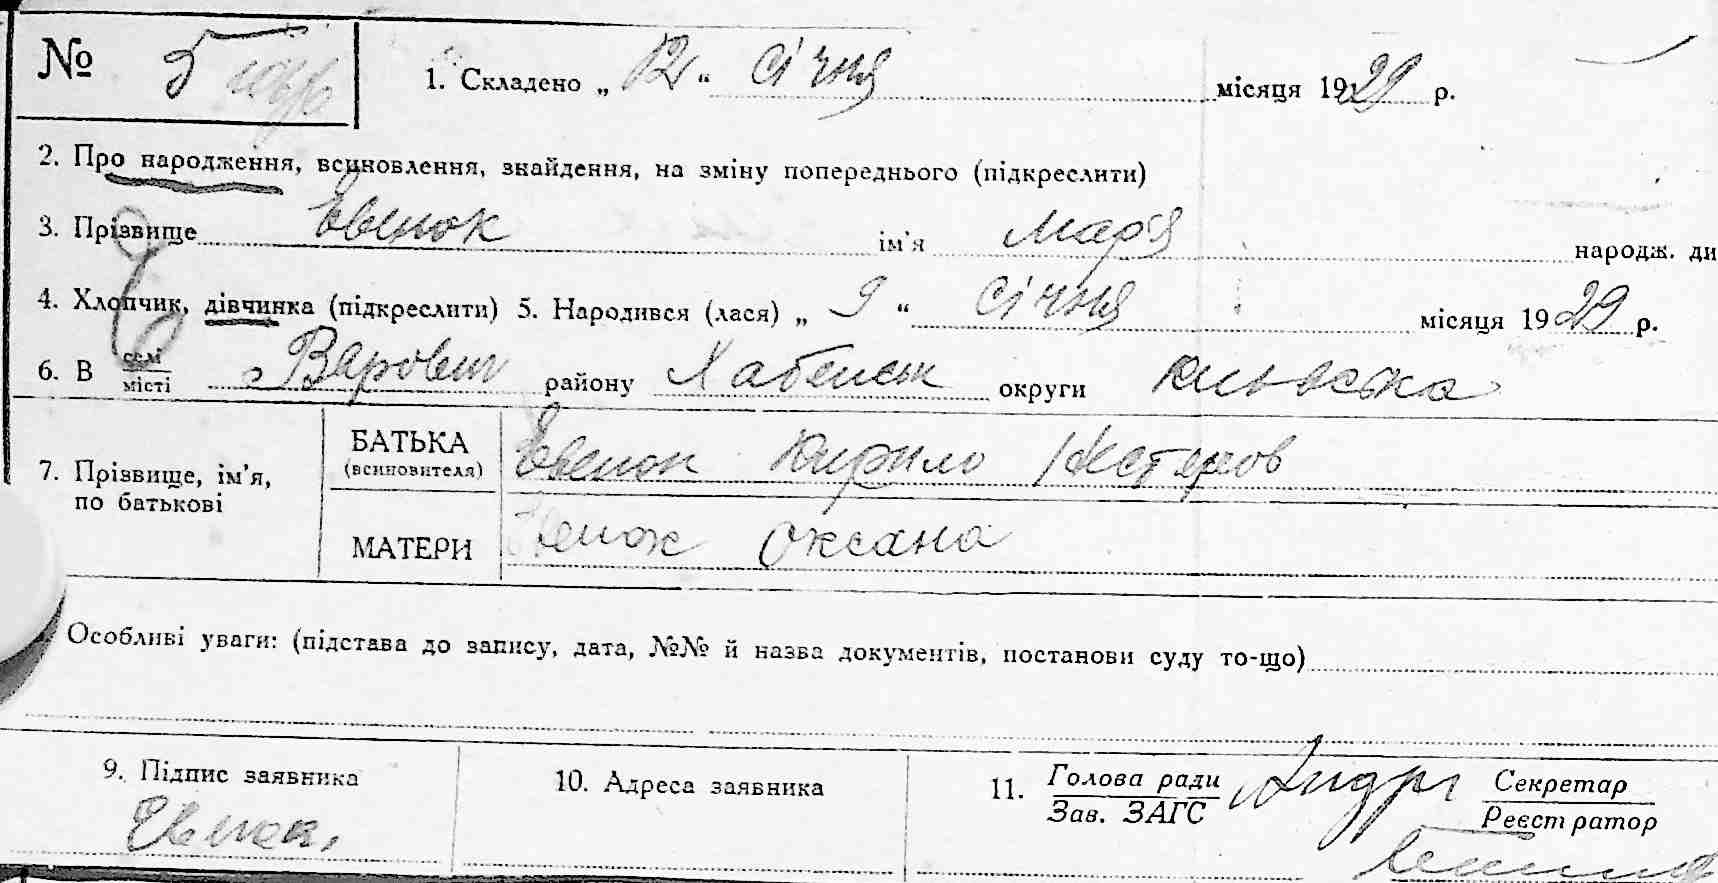 № 5
1. Складено „ 12 “ січня місяця 1929 р.
2. Про народження, всиновлення, знайдення, на зміну попереднього (підкреслити)
3. Прізвище Евенок ім'я Мар'я народж. ди
4. Хлопчик, дівчинка (підкреслити) 5. Народився (лася) „ 9 “ січня місяця 1929 р.
6. В селі місті Варовичі району Хабенськ округи Київська
7. Прізвище, ім'я, по батькові
БАТЬКА (всиновителя) Евенок Кирило Нестеров
МАТЕРИ Евенок Оксана
Особливі уваги: (підстава до запису, дата, №№ й назва документів, постанови суду то-що)
9. Підпис заявника
Евенок.
10. Адреса заявника
11. Голова ради
Зав. ЗАГС
Секретар
Реєстратор